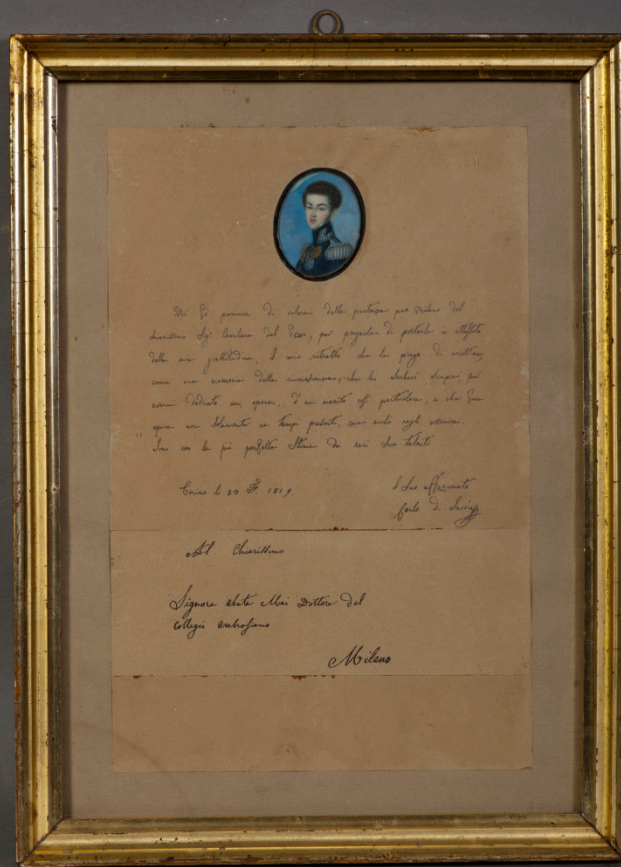 Mi fò premura di valermi della partenza per Milano del
chiarissimo Sig. Cavaliere Del Pozzo, per pregarlo di portarle in attestato
della mia gratitudine, il mio ritratto che la prego di accettare,
come una memoria della riconoscenza, che le serberò sempre, per
avermi dedicato un opera, d'un merito particolare, e che
opera non solamente ne tempi presenti, ma anche negli avvenire.
Sono con la più perfetta stima dei rari suoi talenti
Torino li 20 1819.
Il Suo affezionato
Carlo di Savoia
Al Chiarissimo
Signore abate Mai Dottore Del
Collegio ambrosiano
Milano